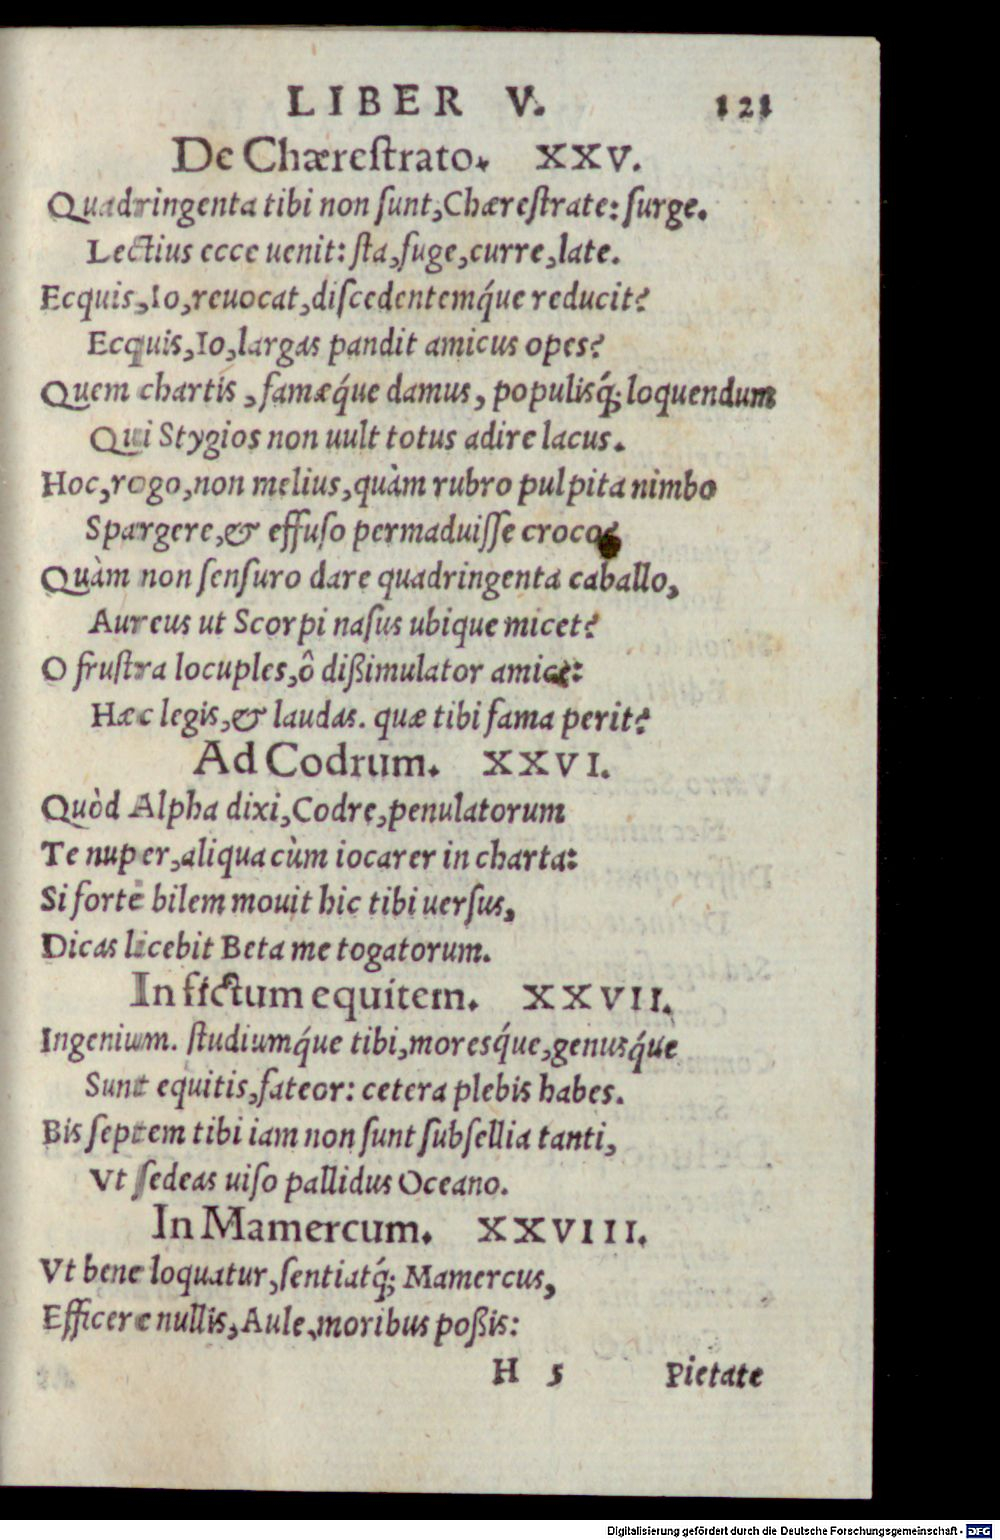 LIBER V. 121
De Chærestrato. XXV.
Quadringenta tibi non ſunt, Chæreſtrate: ſurge.
Lectius ecce uenit: ſta, fuge, curre, late.
Ecquis, Io, reuocat, diſcedentemq́ue reducit?
Ecquis, Io, largas pandit amicus opes?
Quem chartis, famæq́ue damus, populisq́; loquendum
Qui Stygios non uult totus adire lacus.
Hoc, rogo, non melius, quàm rubro pulpita nimbo
Spargere, & effuſo permaduiſſe croco?
Quàm non ſenſuro dare quadringenta caballo,
Aureus ut Scorpi naſus ubique micet?
O fruſtra locuples, ô dißimulator amice:
Hæc legis, & laudas. quæ tibi fama perit?
Ad Codrum. XXVI.
Quòd Alpha dixi, Codre, penulatorum
Te nuper, aliqua cùm iocarer in charta:
Si forte bilem mouit hic tibi uerſus,
Dicas licebit Beta me togatorum.
In fictum equitem. XXVII.
Ingenium. ſtudiumq́ue tibi, moresq́ue, genusq́ue
Sunt equitis, fateor: cetera plebis habes.
Bis ſeptem tibi iam non ſunt ſubſellia tanti,
Vt ſedeas uiſo pallidus Oceano.
In Mamercum. XXVIII.
Vt bene loquatur, ſentiatq́; Mamercus,
Efficere nullis, Aule, moribus poßis:
H 5 Pietate
Digitalisierung gefördert durch die Deutsche Forschungsgemeinschaft - DFG